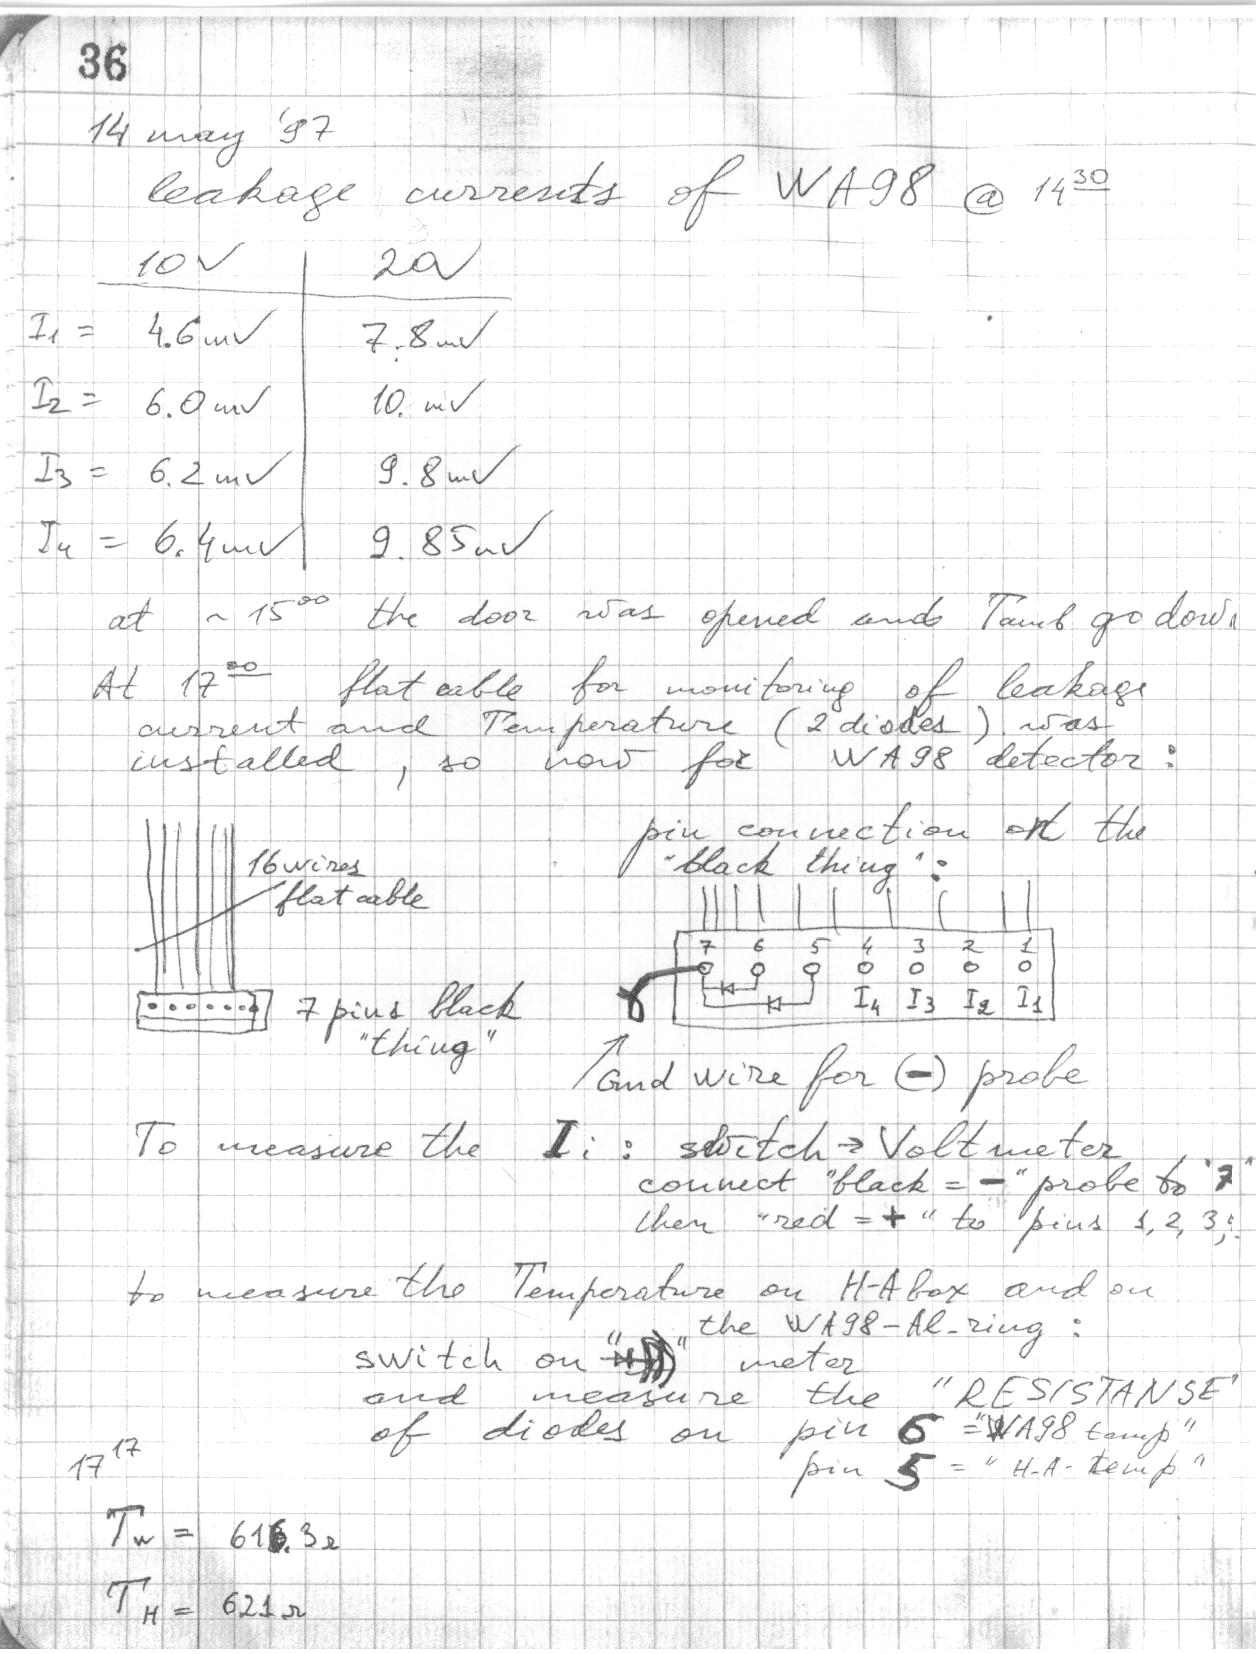 36
14 may '97
leakage currents of WA98 @ 14 30
10V 20V
I1 = 4.6mV 7.8mV
I2 = 6.0mV 10. mV
I3 = 6.2mV 9.8mV
I4 = 6.4mV 9.85mV
at ~ 15 00 the door was opened and Tamb go down
At 17 00 flat cable for monitoring of leakage
current and Temperature (2 diodes) was
installed, so now for WA98 detector:
pin connection at the
"black thing":
16 wires
flat cable
7 6 5 4 3 2 1
I4 I3 I2 I1
7 pins black
"thing"
Gnd wire for (-) probe
To measure the Ii: switch → Voltmeter
connect "black = -" probe to "7"
then "red = +" to pins 1, 2, 3,
to measure the Temperature on H-A box and on
the WA98-Al-ring:
switch on " " meter
and measure the "RESISTANSE"
of diodes on pin 6 = "WA98 temp"
pin 5 = "H-A-temp"
17 17
Tw = 616.3Ω
TH = 621Ω